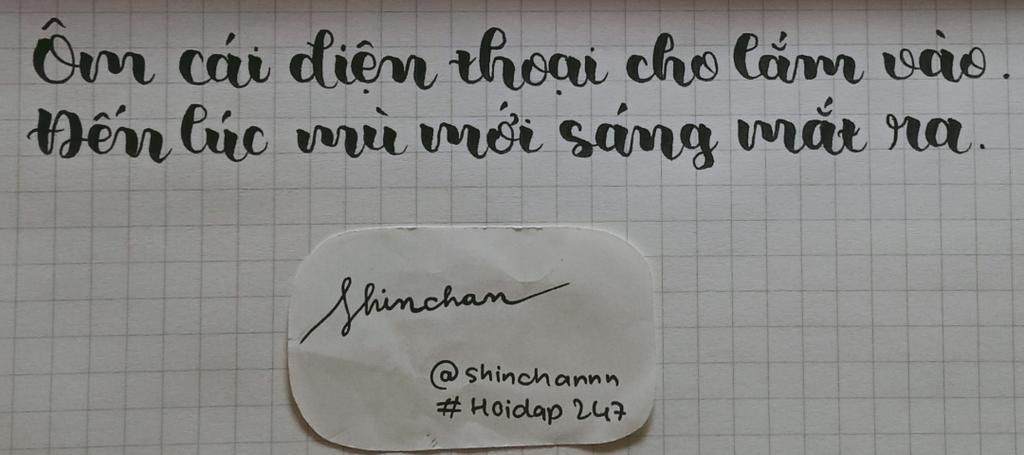 Ôm cái điện thoại cho lắm vào.
Đến lúc mù mới sáng mắt ra.
Shinchan
@shinchannn
# Hoidap 247